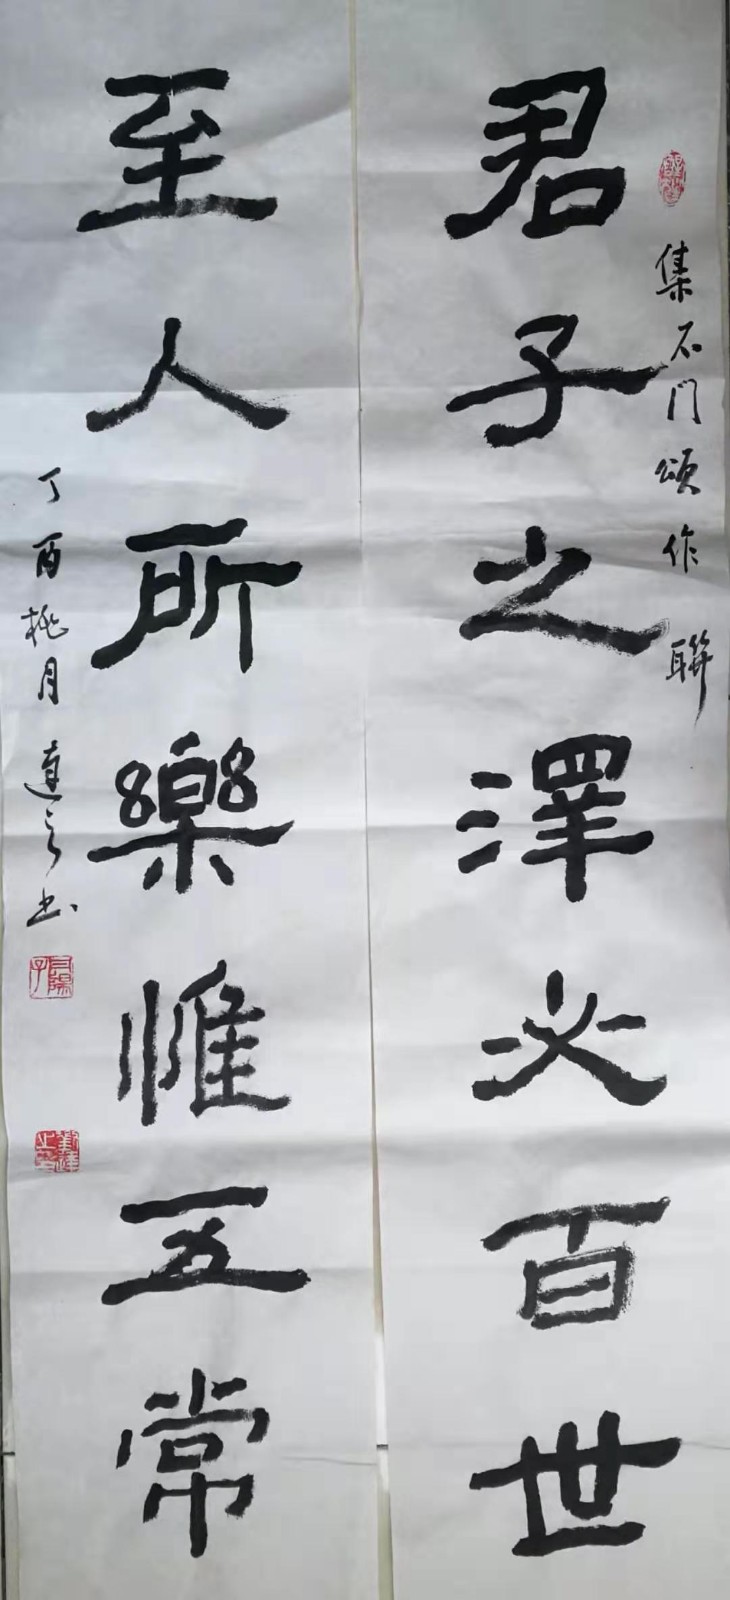 集石門頌作聯
君子之澤必百世
至人所樂惟五常
丁酉桃月達之书